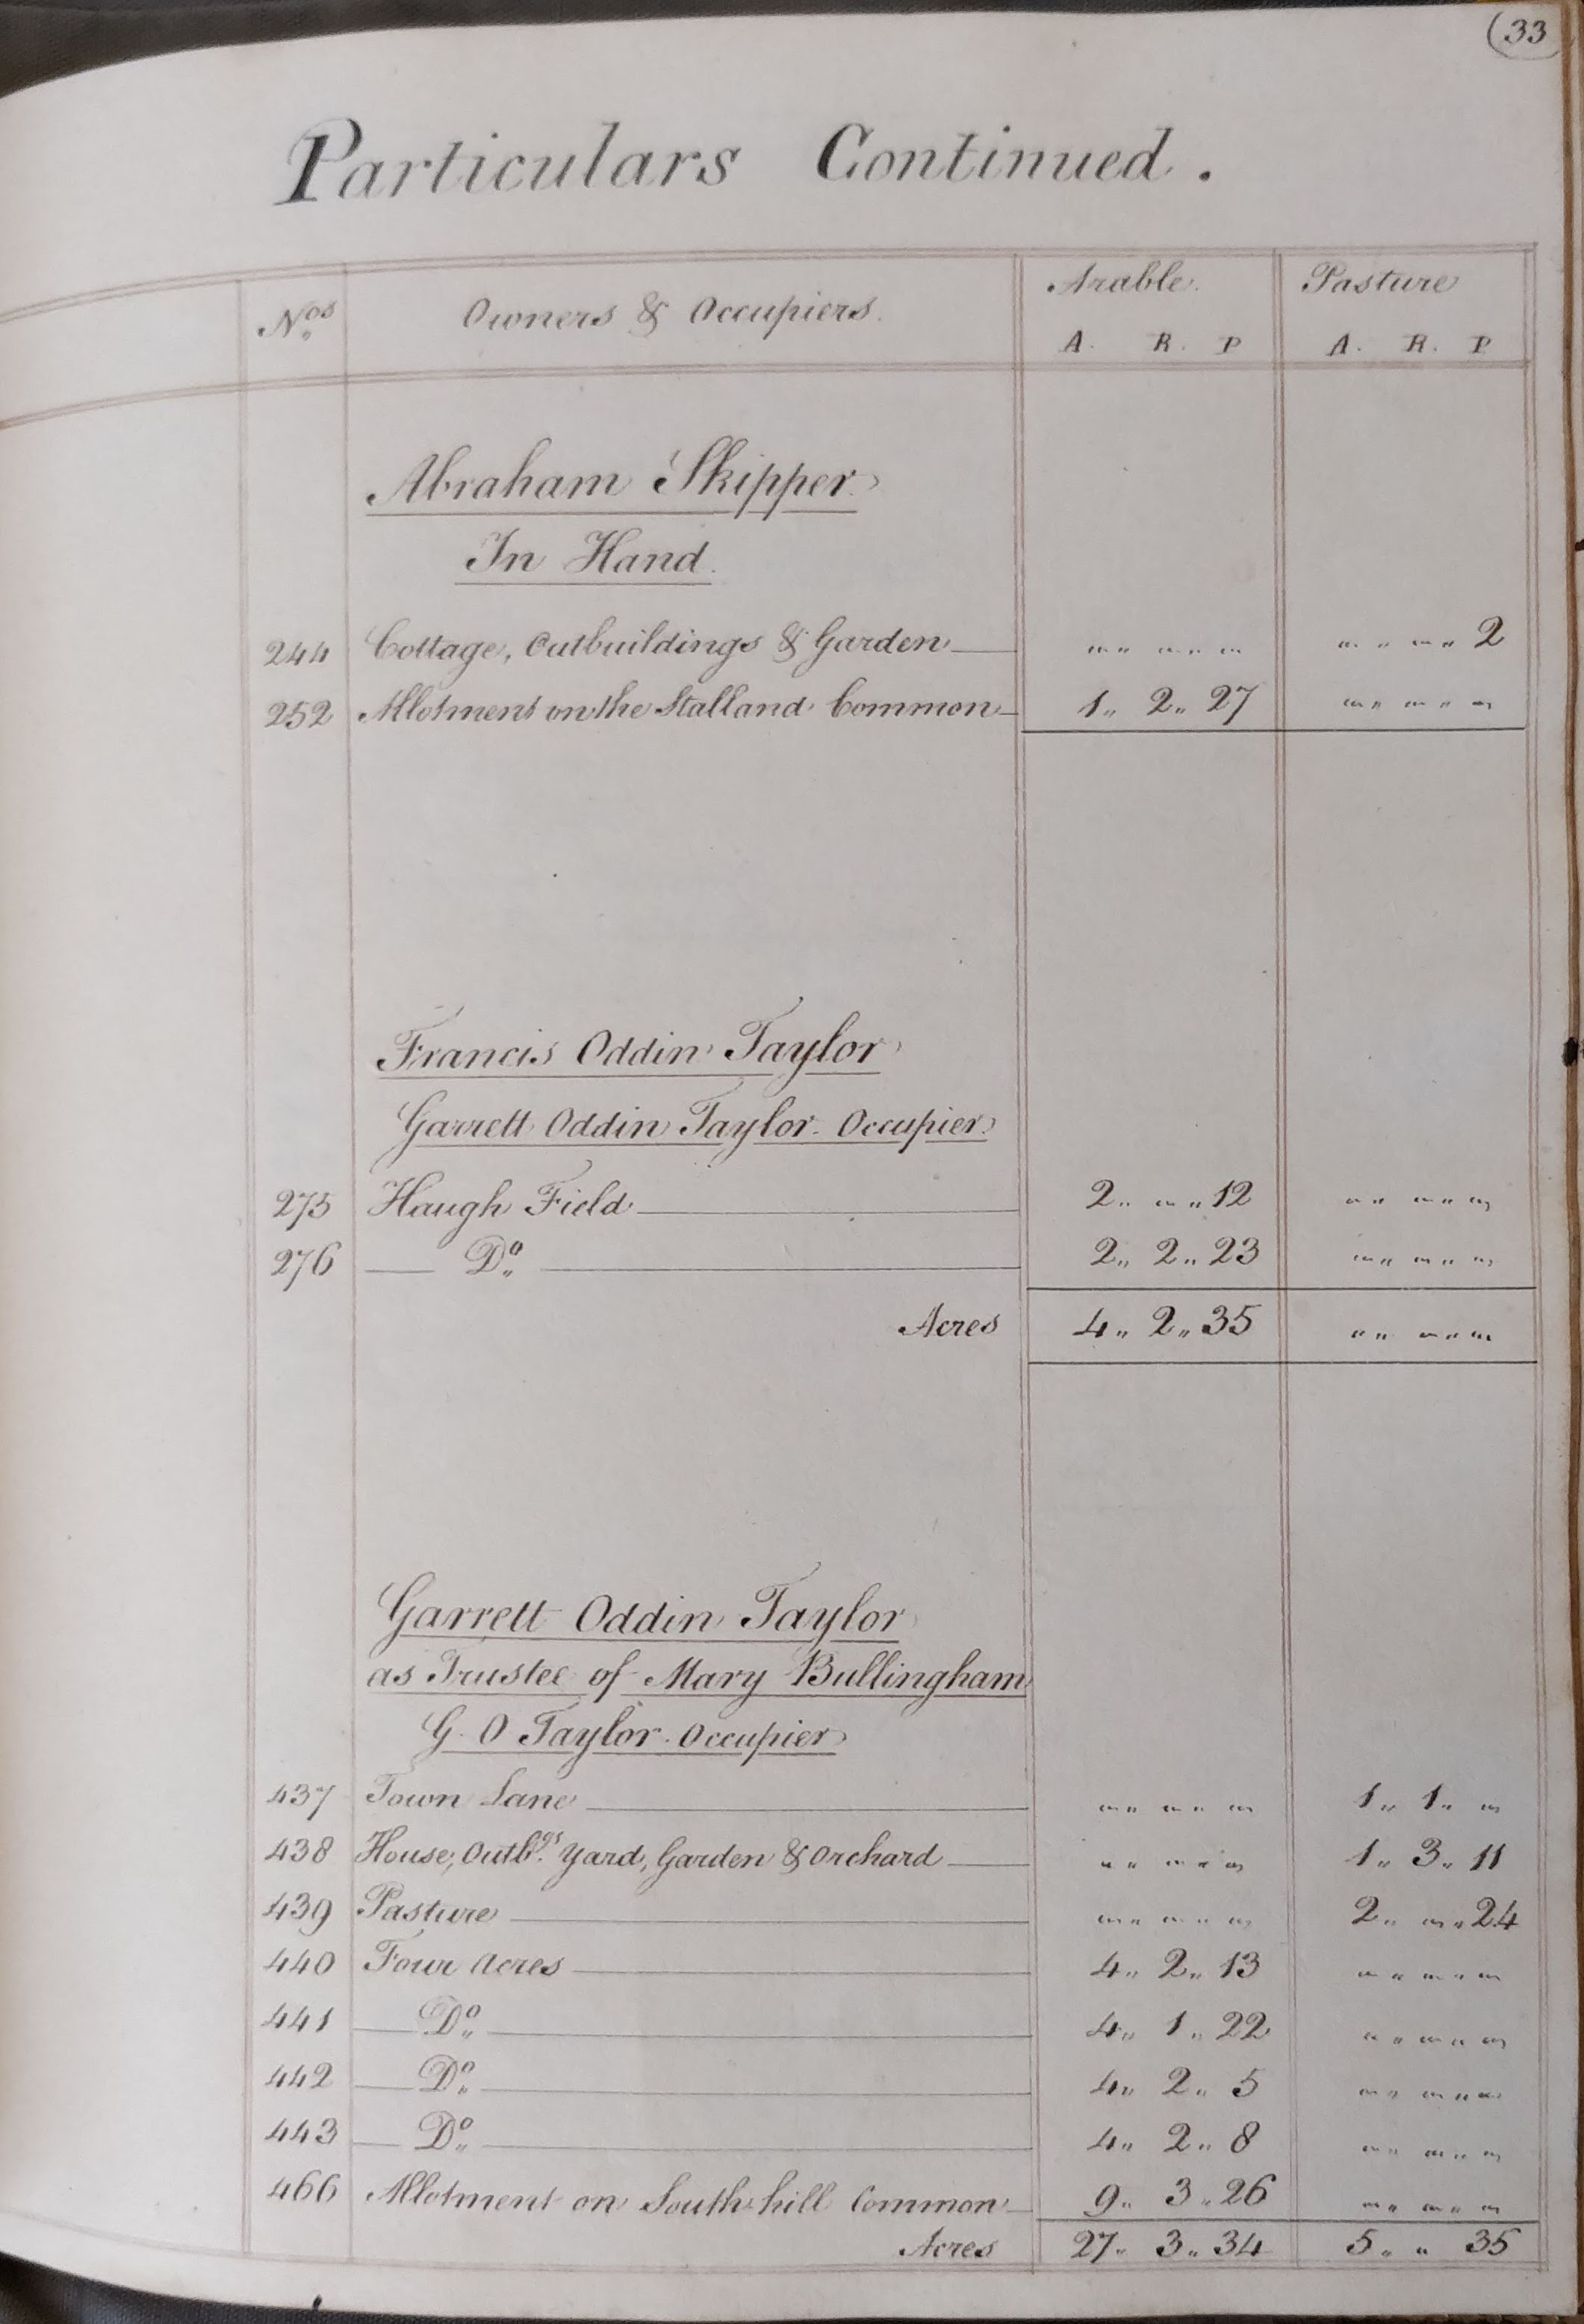 (33
Particulars Continued.
Nos Owners & Occupiers. Arable. Pasture
A. R. P A. R. P
Abraham Skipper
In Hand.
244 Cottage, Outbuildings & Garden — „ „ „ „ 2
252 Allotment on the Stalland Common — 1„ 2„ 27 „ „ „
Francis Oddin Taylor
Garrett Oddin Taylor. Occupier.
275 Haugh Field — 2„ „ 12 „ „ „
276 — Do — 2„ 2„ 23 „ „ „
Acres 4„ 2„ 35 „ „ „
Garrett Oddin Taylor
as Trustee of Mary Bullingham
G. O Taylor. Occupier
437 Town Lane — „ „ „ 1„ 1„ „
438 House, Outbgs. Yard, Garden & Orchard — „ „ „ 1„ 3„ 11
439 Pasture — „ „ „ 2„ „ 24
440 Four Acres — 4„ 2„ 13 „ „ „
441 — Do — 4„ 1„ 22 „ „ „
442 — Do — 4„ 2„ 5 „ „ „
443 — Do — 4„ 2„ 8 „ „ „
466 Allotment on South-hill Common — 9„ 3„ 26 „ „ „
Acres 27„ 3„ 34 5„ „ 35